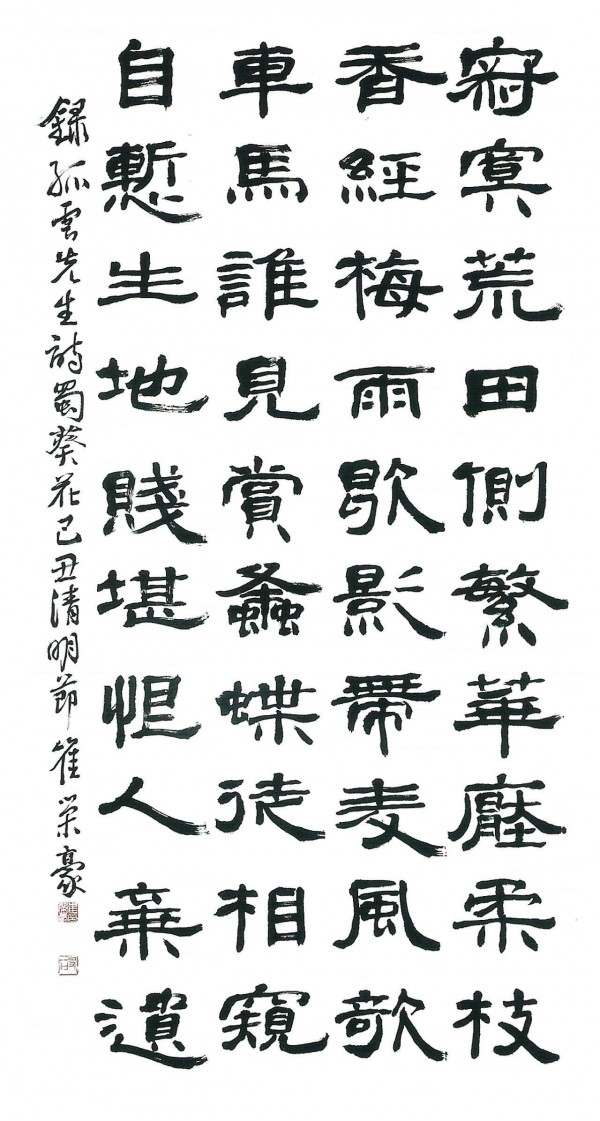 寂寞荒田側繁華壓柔枝
香經梅雨歇影帶麦風欹
車馬誰見賞蠭蝶徒相窺
自慙生地賤堪恨人棄遺
錄孤雲先生詩蜀葵花己丑清明節崔榮豪